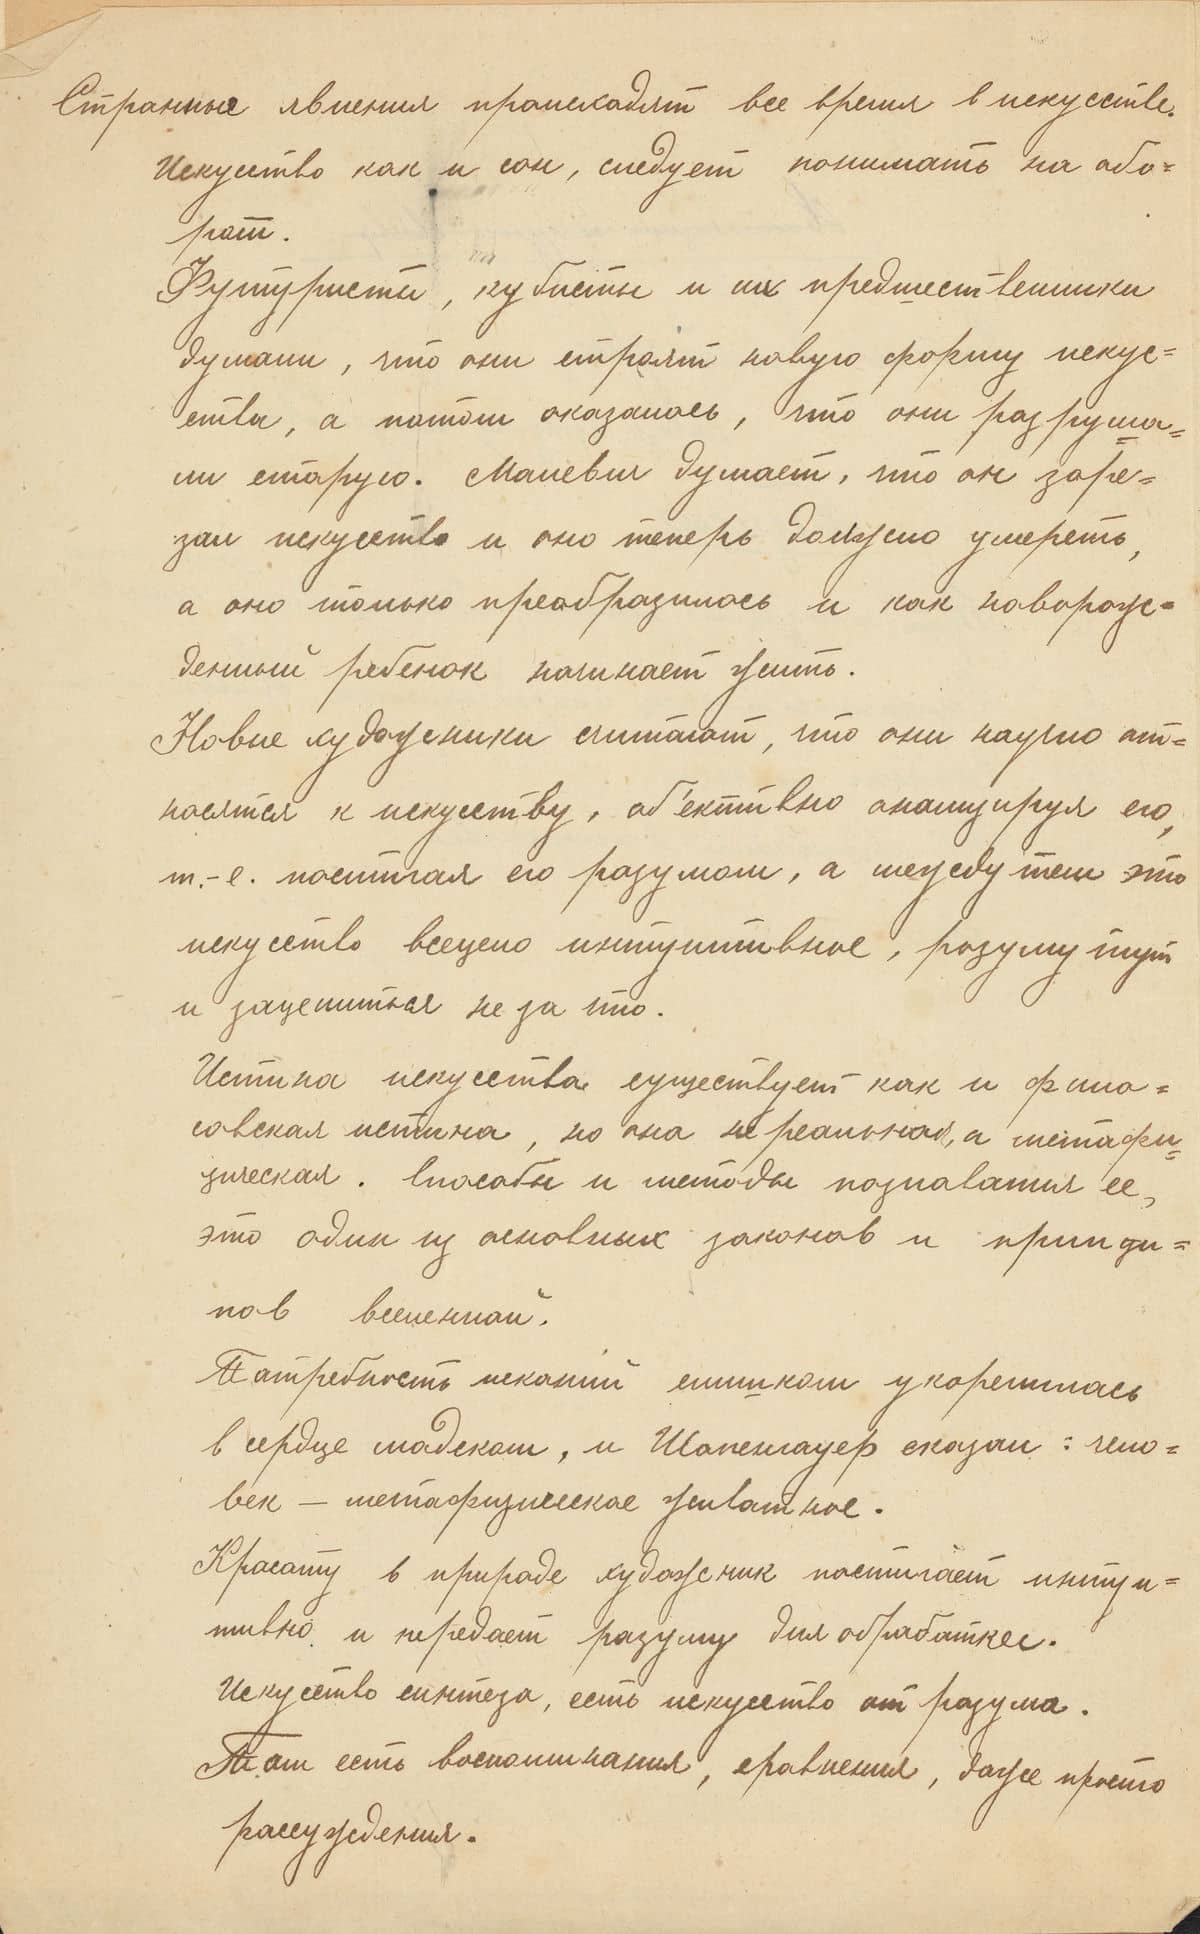 Странные явления происходят все время в искусстве.
Искусство как и сон, следует понимать на обо=
рот.
Футуристы, кубисты и их предшественники
думали, что они строят новую форму искус=
ства, а потом оказалось, что они разруша=
ли старую. Малевич думает, что он заре=
зал искусство и оно теперь должно умереть,
а оно только преобразилось и как новорож=
денный ребенок начинает жить.
Новые художники считают, что они научно от=
носятся к искусству, об'ективно анализируя его,
т.-е. постигая его разумом, а между тем это
искусство всецело интуитивное, разуму тут
и зацепиться не за что.
Истина искусства существует как и фило=
совская истина, но она не реальная, а метафи=
зическая. Способы и методы познавания ее,
это один из основных законов и принци=
пов вселенной.
Потребность исканий слишком укоренилась
в сердце людском, и Шопенгауер сказал: чело=
век — метафизическое животное.
Красоту в природе художник постигает интуи=
тивно и передает разуму для обработки.
Искусство синтеза, есть искусство от разума.
Там есть воспоминания, сравнения, даже просто
рассуждения.